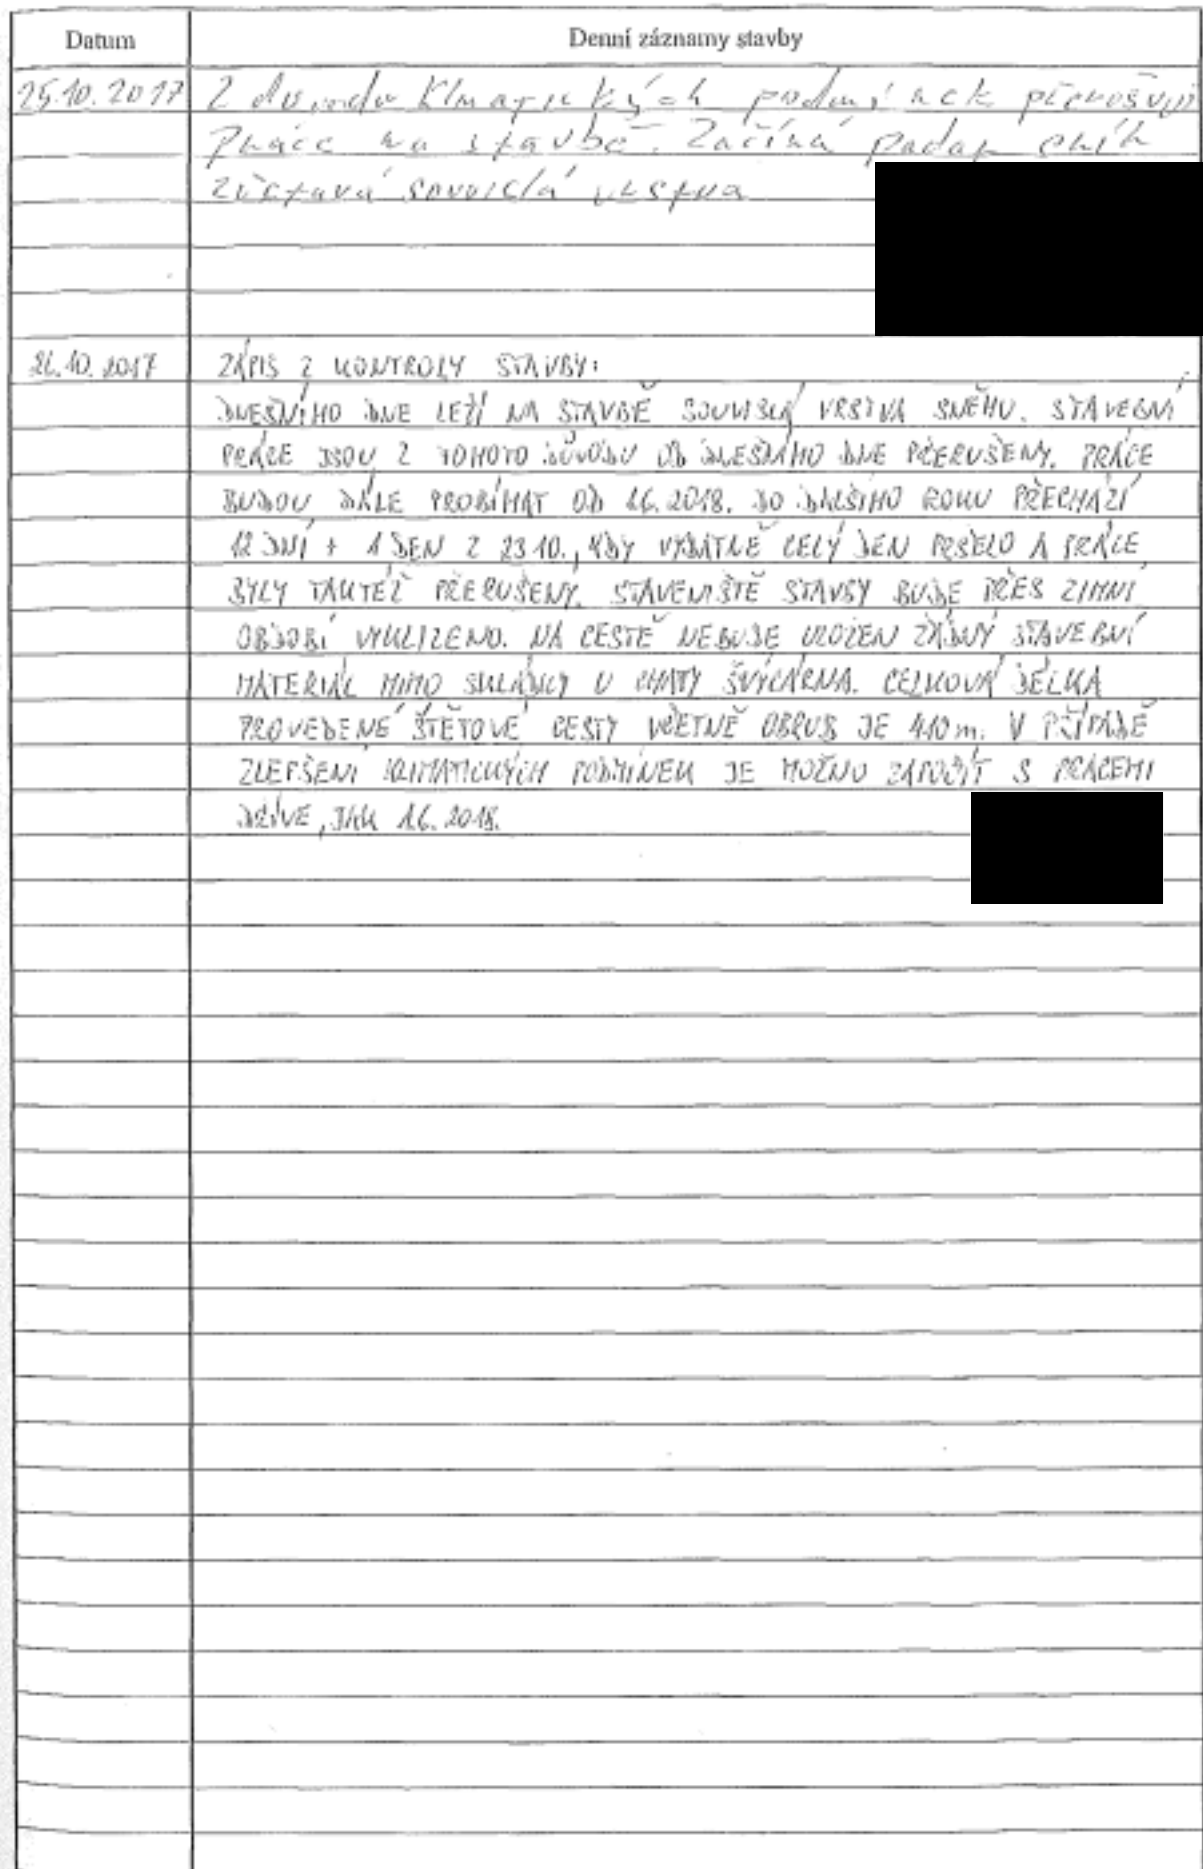 Datum Denní záznamy stavby
25.10.2017 Z duvodu Klmatických podmínek přerušuji
Práce na stavbě. Začíná padat sníh
zůstavá souvislá vrstva
26.10.2017 ZÁPIS Z KONTROLY STAVBY:
DNEŠNÍHO DNE LEŽÍ NA STAVBĚ SOUVISLÁ VRSTVA SNĚHU. STAVEBNÍ
PRÁCE JSOU Z TOHOTO DŮVODU OD DNEŠNÍHO DNE PŘERUŠENY. PRÁCE
BUDOU DÁLE PROBÍHAT OD 1.6.2018. DO DALŠÍHO ROKU PŘECHÁZÍ
12 DNÍ + 1 DEN Z 23.10., KDY VYDATNĚ CELÝ DEN PRŠELO A PRÁCE
BYLY TAKTÉŽ PŘERUŠENY. STAVENIŠTĚ STAVBY BUDE PŘES ZIMNÍ
OBDOBÍ VYKLIZENO. NA CESTĚ NEBUDE ULOŽEN ŽÁDNÝ STAVEBNÍ
MATERIÁL MIMO SKLÁDKY U CHATY ŠVÝCÁRNA. CELKOVÁ DÉLKA
PROVEDENÉ ŠTĚTOVÉ CESTY VČETNĚ OBRUB JE 410 m. V PŘÍPADĚ
ZLEPŠENÍ KLIMATICKÝCH PODMÍNEK JE MOŽNO ZAPOČÍT S PRACEMI
DŘÍVE, JAK 1.6.2018.